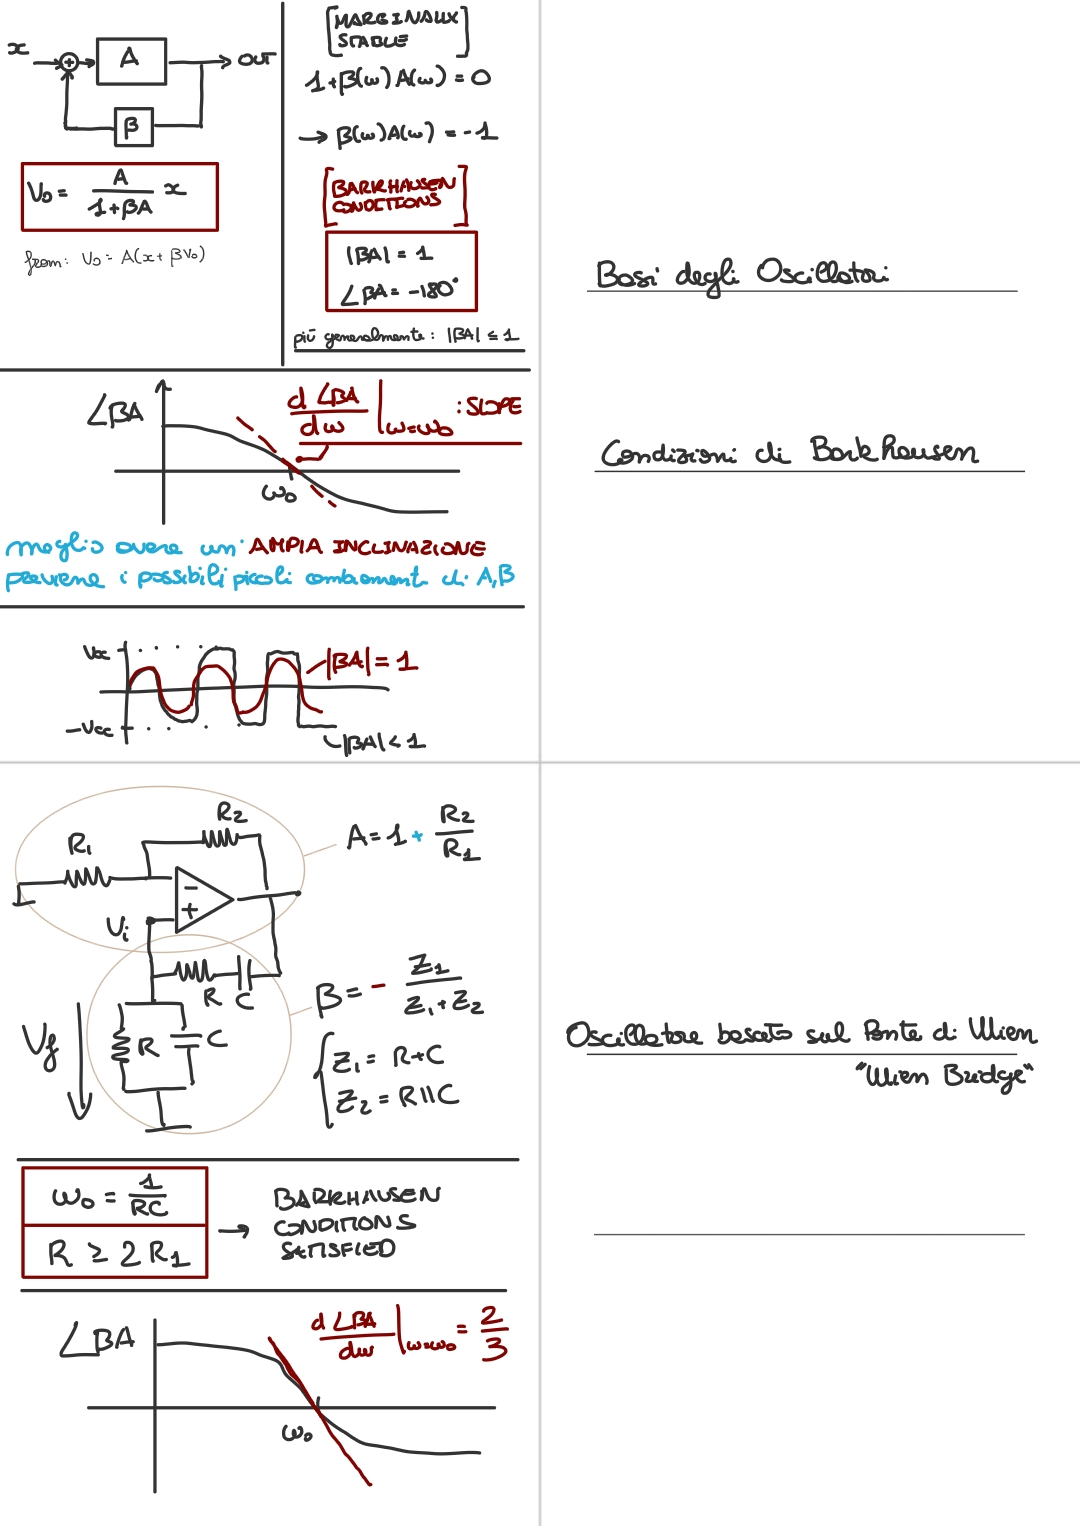 x
+
A
OUT
β
V₀ = A / (1+βA) x
from: V₀ = A(x + βV₀)
[MARGINALLY
STABLE]
1+β(ω)A(ω) = 0
→ β(ω)A(ω) = -1
[BARKHAUSEN
CONDITIONS]
|βA| = 1
∠βA = -180°
più generalmente: |BA| ≤ 1
Basi degli Oscillatori
∠BA
d∠BA / dω |ω=ω₀ : SLOPE
ω₀
Condizioni di Barkhausen
meglio avere un' AMPIA INCLINAZIONE
previene i possibili piccoli cambiamenti di A,B
Vcc
|BA| = 1
-Vcc
|BA| < 1
R₁
R₂
A = 1 + R₂ / R₁
-
+
Vi
R C
β = - Z₁ / (Z₁ + Z₂)
Vf
R
C
Z₁ = R+C
Z₂ = R//C
Oscillatore basato sul Ponte di Wien
"Wien Bridge"
ω₀ = 1 / RC
R ≥ 2 R₁
→ BARKHAUSEN
CONDITIONS
SATISFIED
∠BA
d∠BA / dω |ω=ω₀ = 2 / 3
ω₀